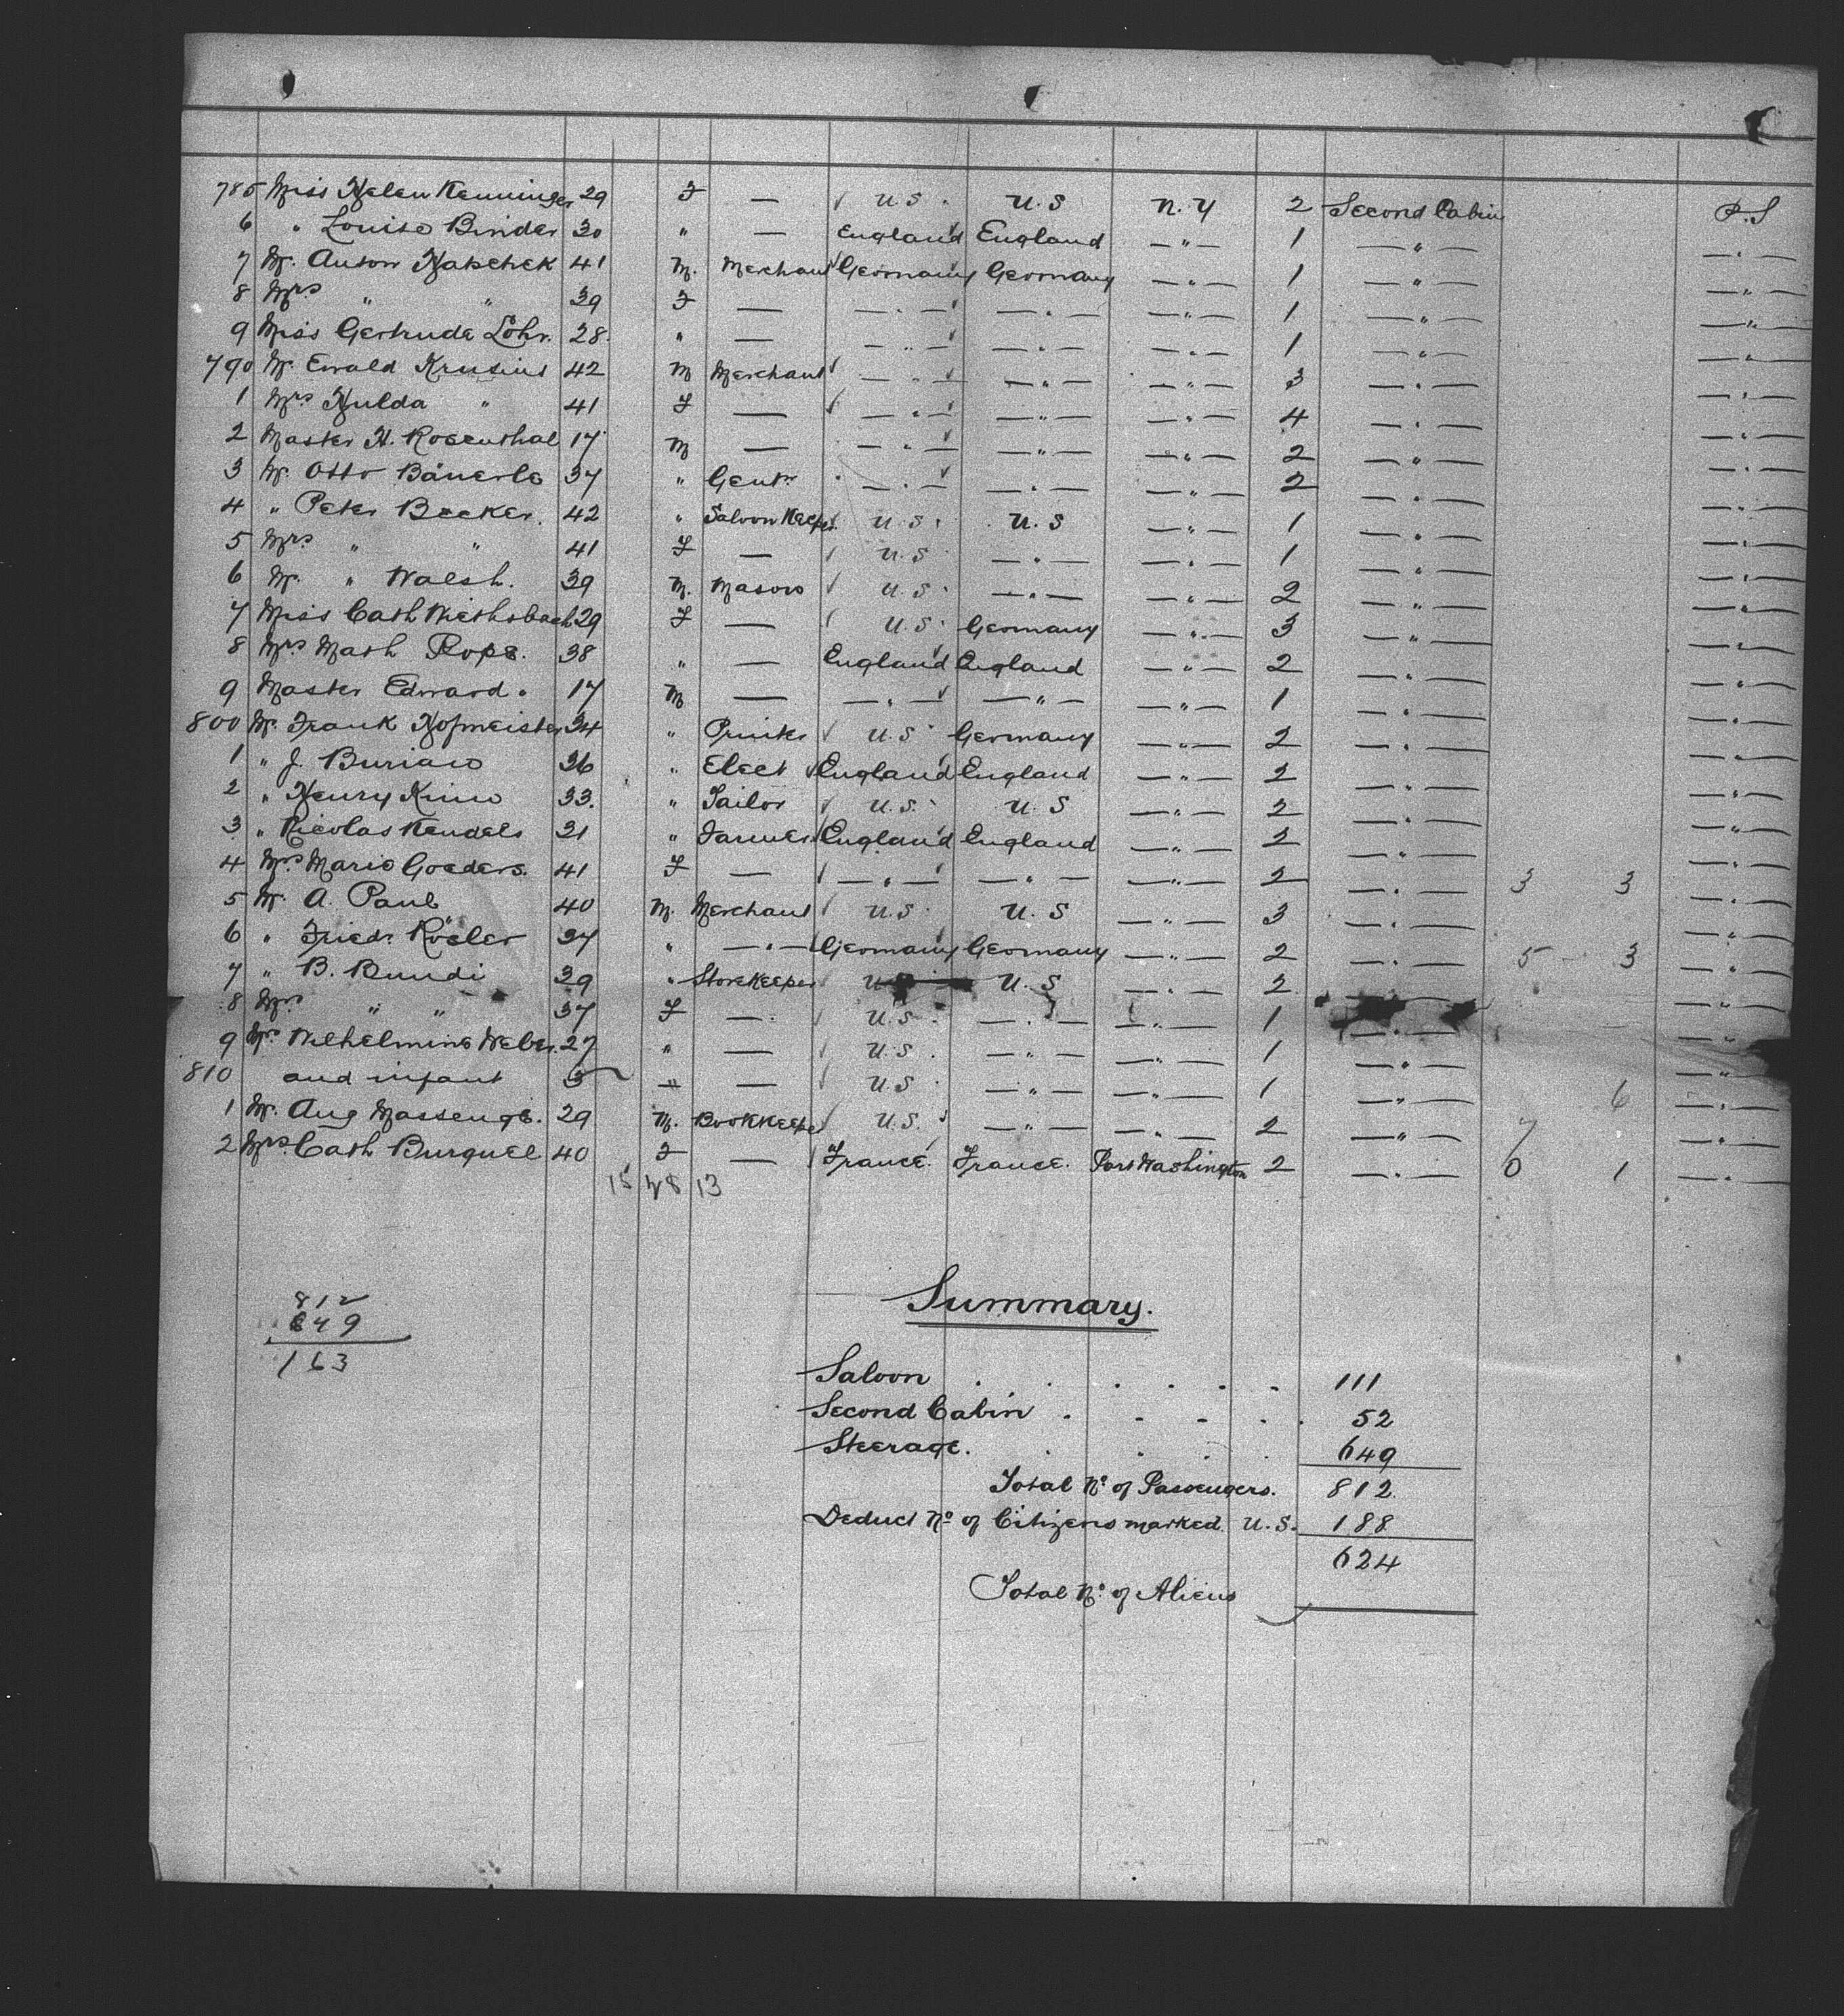 785 Miss Helen Kenninger 29 F — U.S. U.S N.Y 2 Second Cabin P.S
6 " Louise Binder 30 " — England England —"— 1 —"— —"—
7 Mr. Anton 41 M. Merchant Germany Germany —"— 1 —"— —"—
8 Mrs " " 39 F — —"— —"— —"— 1 —"— —"—
9 Miss Gertrude Löhr. 28. " — —"— —"— —"— 1 —"— —"—
790 Mr. Ewald Krusius 42 M Merchant —"— —"— —"— 3 —"— —"—
1 Mrs Hulda " 41 F — —"— —"— —"— 4 —"— —"—
2 Master H. Rosenthal 17 M — —"— —"— —"— 2 —"— —"—
3 Mr. Otto Bäuerle 37 " Gentn —"— —"— —"— 2 —"— —"—
4 " Peter Becker. 42 " Saloon Keeper U.S. U.S —"— 1 —"— —"—
5 Mrs " " 41 F — U.S —"— —"— 1 —"— —"—
6 Mr. " Walsh. 39 M. Mason U.S. —"— —"— 2 —"— —"—
7 Miss Cath Wiethsbach 29 F — U.S. Germany —"— 3 —"— —"—
8 Mrs Math Pope. 38 " — England England —"— 2 —"— —"—
9 Master Edward " 17 M — —"— —"— —"— 1 —"— —"—
800 Mr. Frank Hofmeister 34 " Printer U.S Germany —"— 2 —"— —"—
1 " J. Burian 36 " Elect England England —"— 2 —"— —"—
2 " Henry Kino 33. " Tailor U.S. U.S —"— 2 —"— —"—
3 " Nicolas Kendels 31 " Farmer England England —"— 2 —"— —"—
4 Mrs Marie Goeders. 41 F — —"— —"— —"— 2 —"— 3 3 —"—
5 Mr. A. Paul 40 M. Merchant U.S. U.S —"— 3 —"— —"—
6 " Friedr. Rösler 37 " —"— Germany Germany —"— 2 —"— 5 - 3 —"—
7 " B. Bundi 39 " Storekeeper U.S U.S —"— 2 —"—
8 Mrs " " 37 F — U.S. —"— —"— 1 —"— —"—
9 Mrs Wilhelmine Weber. 27 " — U.S. —"— —"— 1 —"— —"—
810 and infant 3 " — U.S. —"— —"— 1 —"— 6 —"—
1 Mr. Aug Massenge. 29 M. Bookkeeper U.S. —"— —"— 2 —"— 7 —"—
2 Mrs. Cath Burquel 40 F — France. France. Port Washington 2 —"— 0 1 —"—
15 13
812
649
163
Summary.
Saloon . . . . . . 111
Second Cabin . . . . . 52
Steerage. . . . . 649
Total No of Passengers. 812.
Deduct No of Citizens marked U.S. 188
624
Total No of Aliens